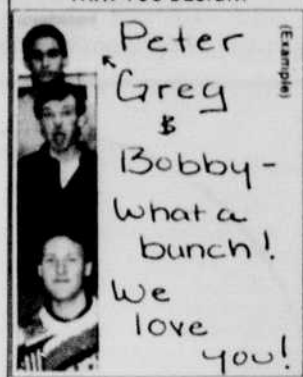 Peter
Greg
&
Bobby-
What a
bunch!
We
love
you!
(Example)